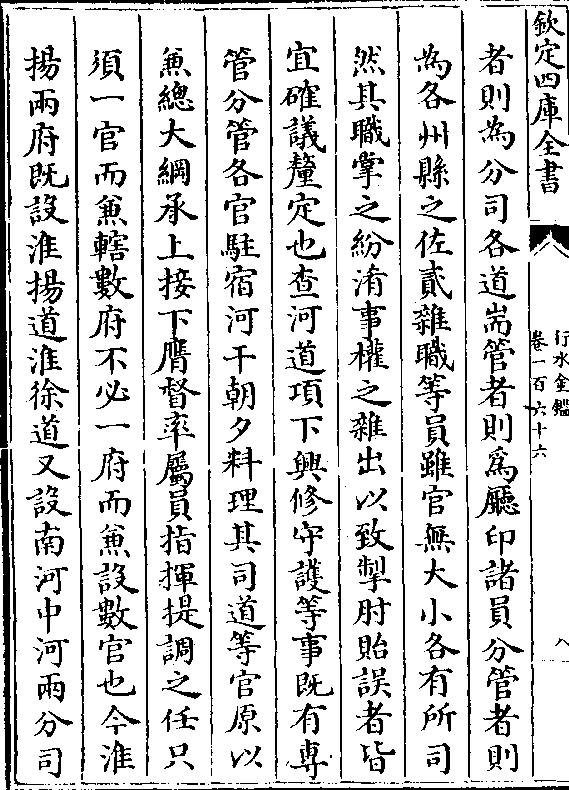 欽定四庫全書
行水金鑑
卷一百六十六
八
者則為分司各道耑管者則為廳印諸員分管者則
為各州縣之佐貳雜職等員雖官無大小各有所司
然其職掌之紛淆事權之雜出以致掣肘貽誤者皆
宜確議釐定也查河道項下興修守護等事既有專
管分管各官駐宿河干朝夕料理其司道等官原以
兼總大綱承上接下膺督率屬員指揮提調之任只
須一官而兼轄數府不必一府而兼設數官也今淮
揚兩府既設淮揚道淮徐道又設南河中河兩分司